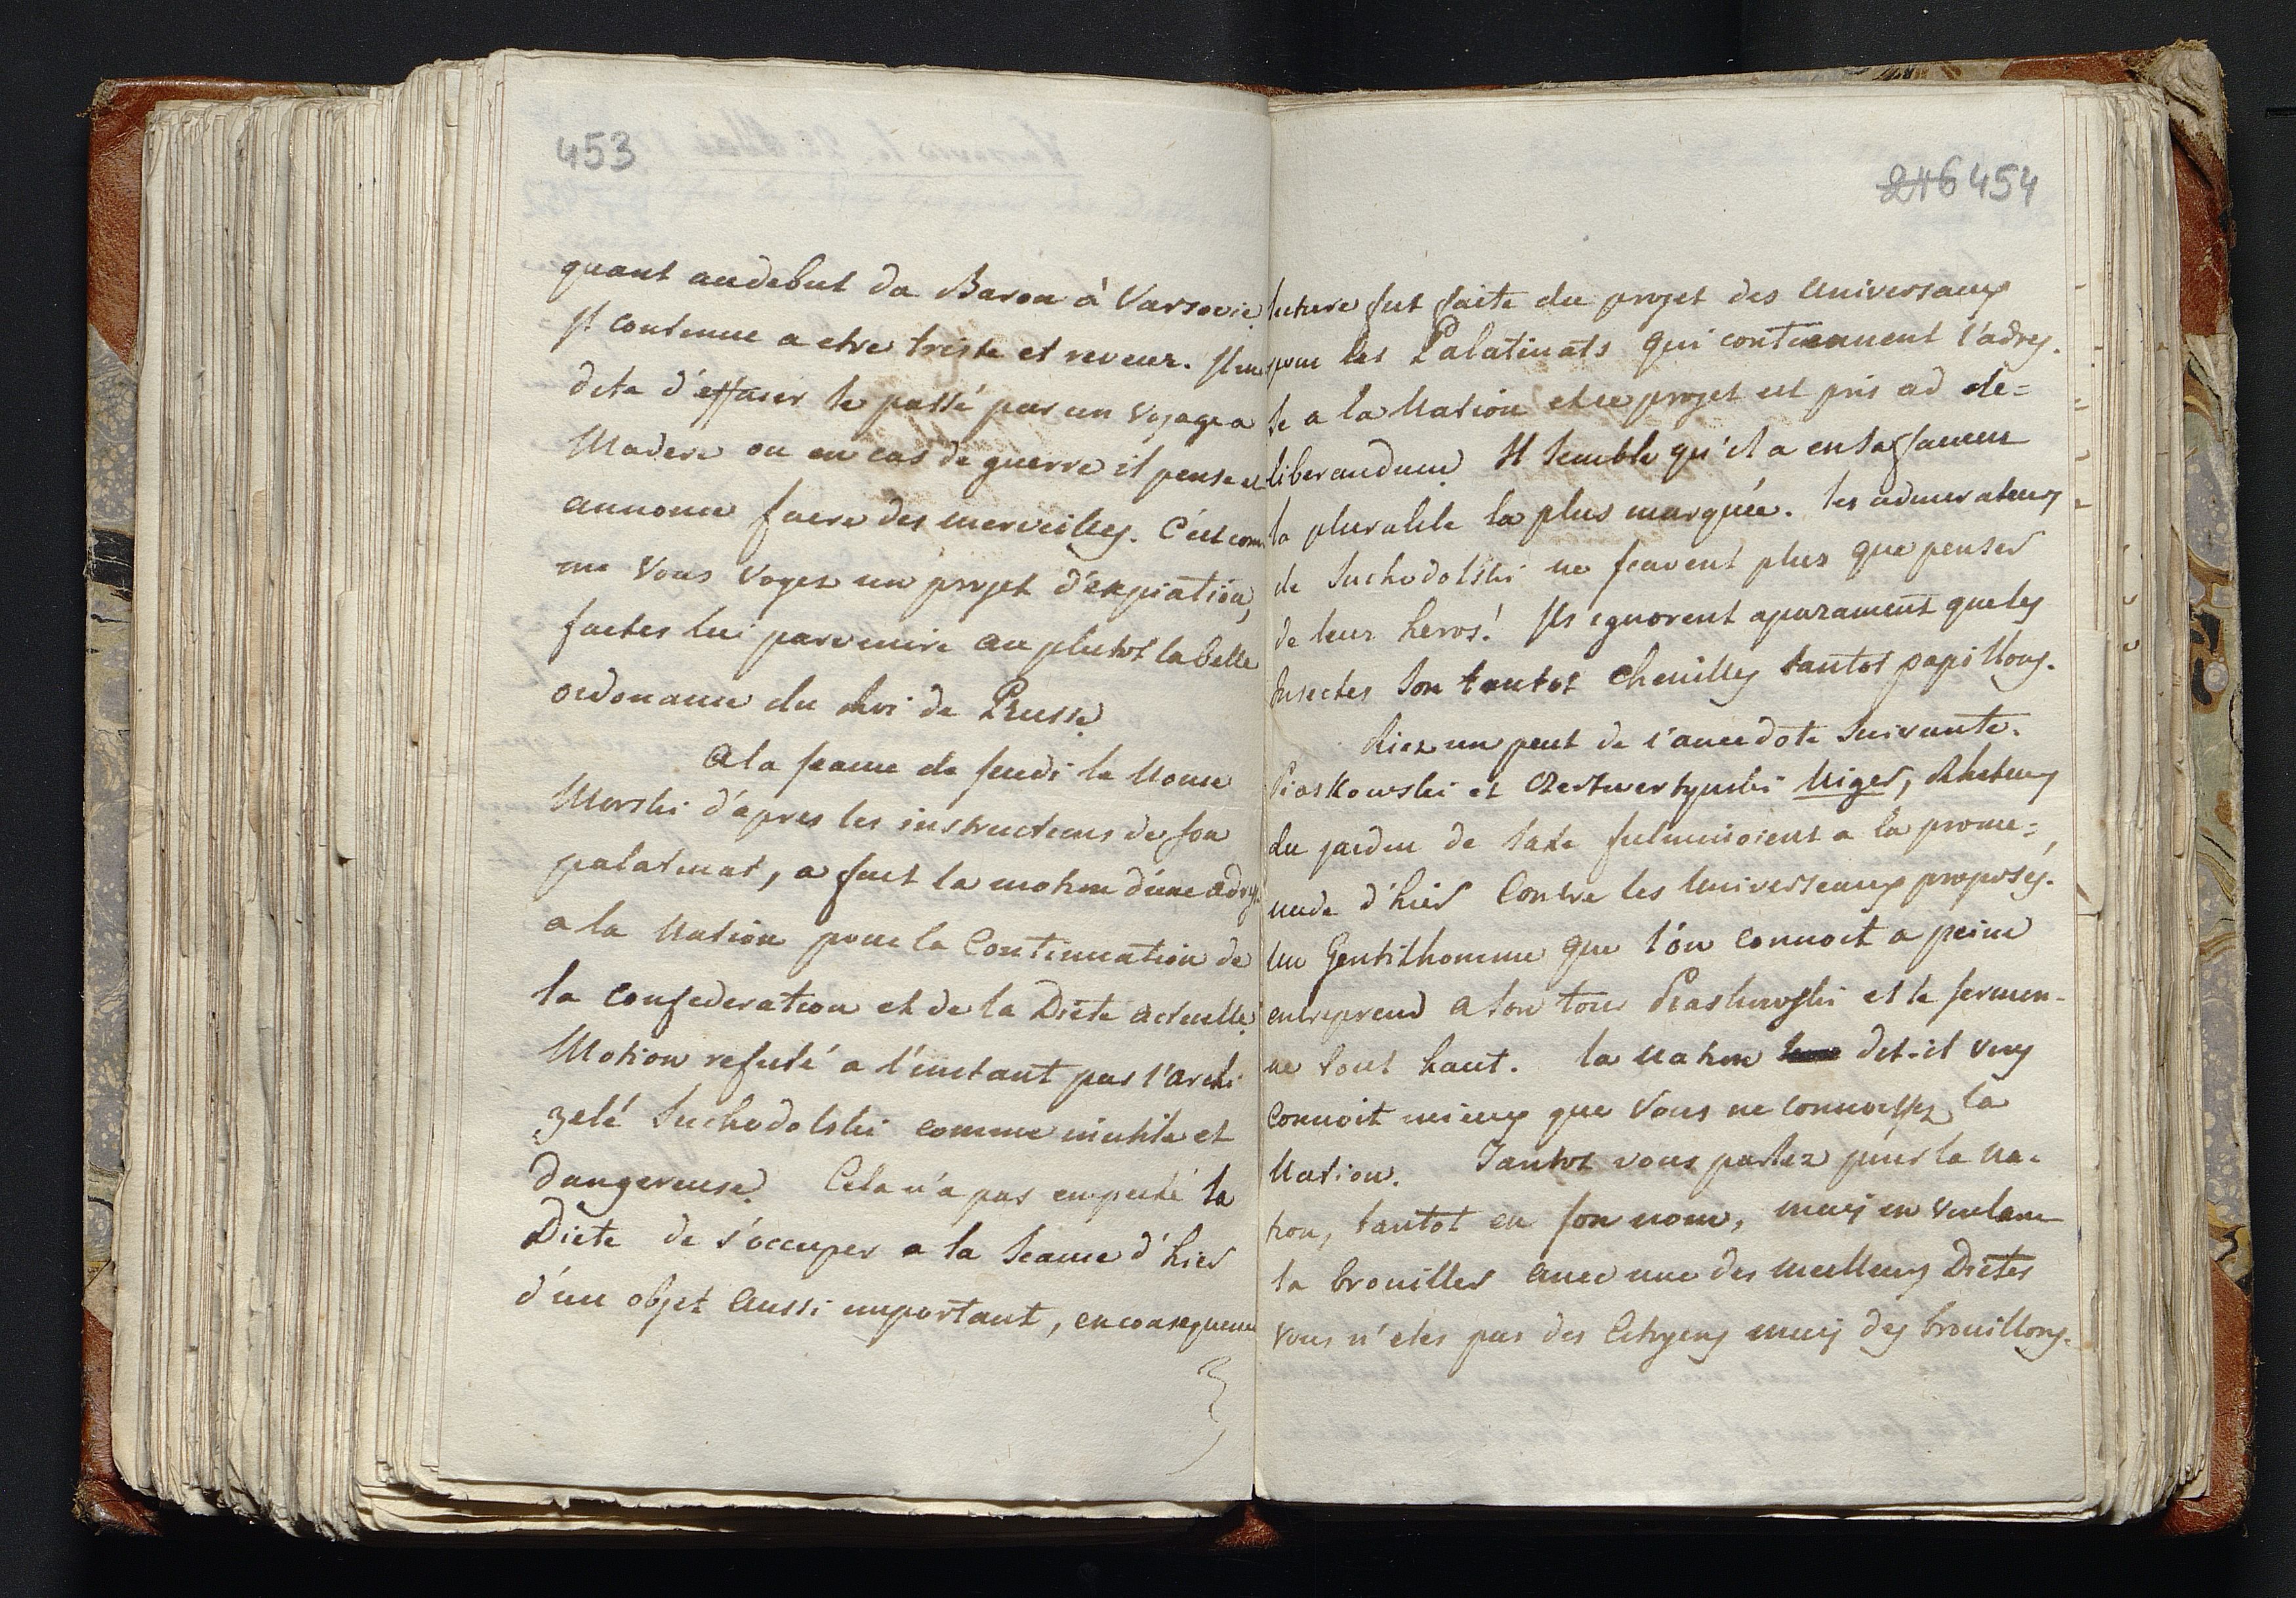 453
quant au debut du Baron à Varsovie.
Il continue a etre triste et reveur. Il me
dite d'effacer le passé par un voyage a
Madere ou en cas de guerre il pense et
annonce faere des merveilles. C'est com
me vous voyez un projet d'expiation,
faites lui parvenire au plutot la belle
ordonance du Roi de Prusse.
A la seance de jeudi le Nonce
Morski d'apres les instructions de son
palatinat, a fait la motion d'une adres.
a la Nation pour la Continuation de
la confederation et de la Diete actuelle.
Motion refuté a l'instant par l'archi
zelé Suchodolski comme inutile et
dangereuse. Cela n'a pas empeché la
Diete de s'occuper a la seance d'hier
d'un objet aussi important, en consequence
246 454
lecture fut faite du projet des Universaux
pour les Palatinats qui contiennent l'adres.
se a la Nation et ce projet est pris ad de=
liberandum. Il semble qu'il a en sa faveur
la pluralité la plus marquée. les admirateurs
de Suchodolski ne scavent plus que penser
de leur heros! Ils ignorent aparament que les
Insectes son tantot chenilles tantot papillons.
Riez un peut de l'anecdote suivante.
Piaskowski et Czertwertynski Niger, Rheteurs
du jardin de Saxe fulminoient a la prome=
nade d'hier Contre les Universeaux proposés.
Un Gentilhomme que l'on connoit a peine
entreprend a son tour Piaskowski et le sermon-
ne tout haut. la nation dit-il vous
connoit mieux que vous ne connoissez la
Nation. Tantot vous parlez pour la Na-
tion, tantot en son nom, mais en voulant
la brouiller avec une des meilleurs Dietes
vous n'etes pas des Citoyens mais des brouillons.